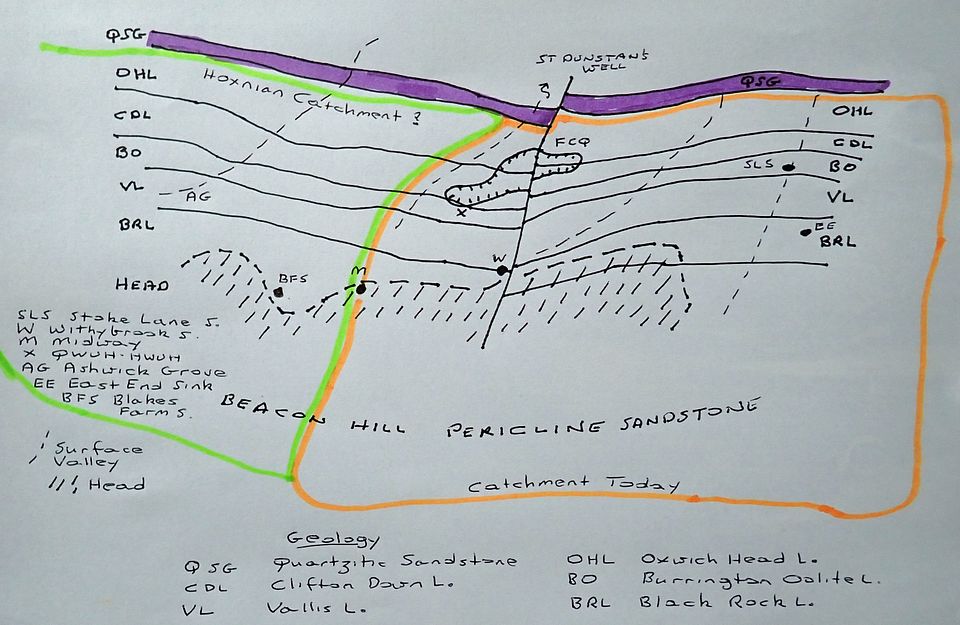 QSG
ST DUNSTAN'S
WELL
QSG
OHL
HOXNIAN CATCHMENT ?
?
OHL
CDL
FCQ
CDL
BO
SLS
BO
VL
AG
X
VL
BRL
EE
BRL
W
M
HEAD
BFS
SLS Stoke Lane S.
W Withybrook S.
M Midway
X QWUH-HWUH
AG Ashwick Grove
EE East End Sink
BFS Blakes
Farm S.
BEACON HILL PERICLINE SANDSTONE
Surface
Valley
Head
Catchment Today
Geology
QSG Quartzitic Sandstone
OHL Oxwich Head L.
CDL Clifton Down L.
BO Burrington Oolite L.
VL Vallis L.
BRL Black Rock L.